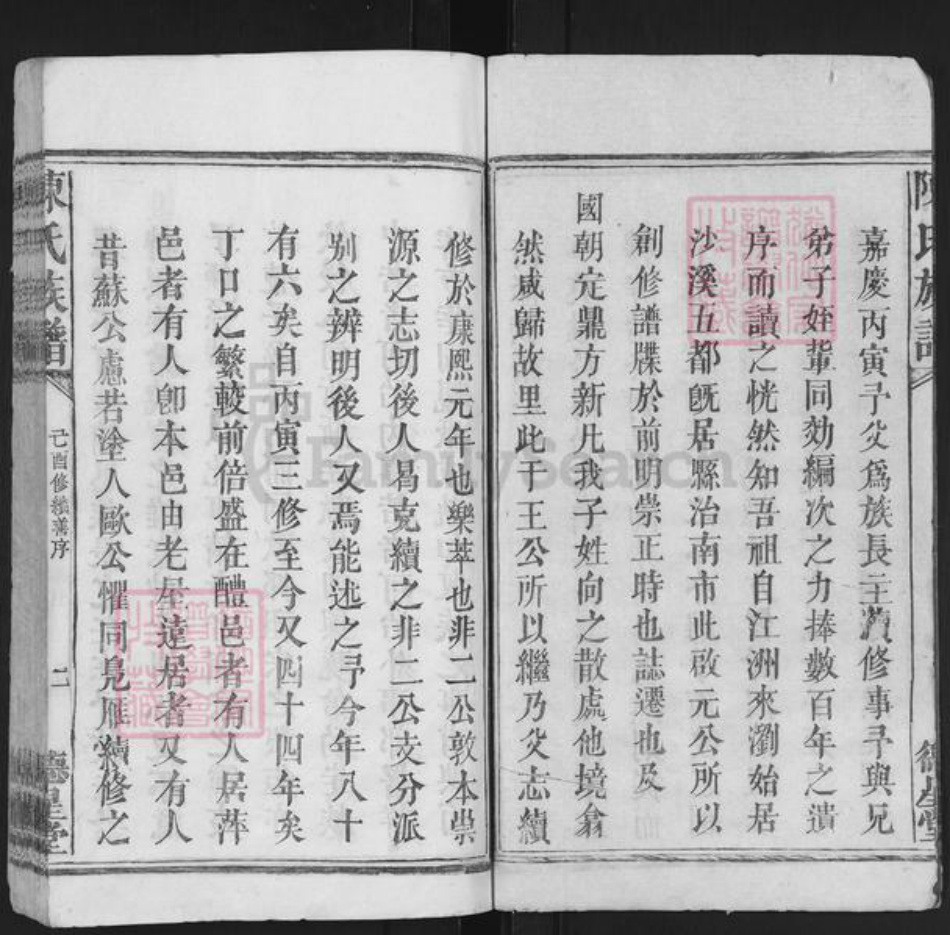 嘉慶丙寅予父爲族長主賮修事予與兄
弟子姪輩同効編次之力捧數百年之遺
序而讀之恍然知吾祖自江洲來瀏始居
沙溪五都旣居縣治南市此啟元公所以
創修譜牒於前明崇正時也誌遷也及
國朝定鼎方新凡我子姓向之散處他境翕
然咸歸故里此于王公所以繼乃父志續
修於康熙元年也樂萃也非二公敦本崇
源之志切後人曷克續之非二公支分派
别之辨明後人又焉能述之予今年八十
有六矣自丙寅三修至今又四十四年矣
丁口之繁較前倍盛在醴邑者有人居萍
邑者有人卽本邑由老屋遠居者又有人
昔蘇公慮若塗人歐公懼同鳬雁續修之
陳氏族譜
己酉修繼善序
二
德星堂
陳氏族譜
德星堂
FamilySearch